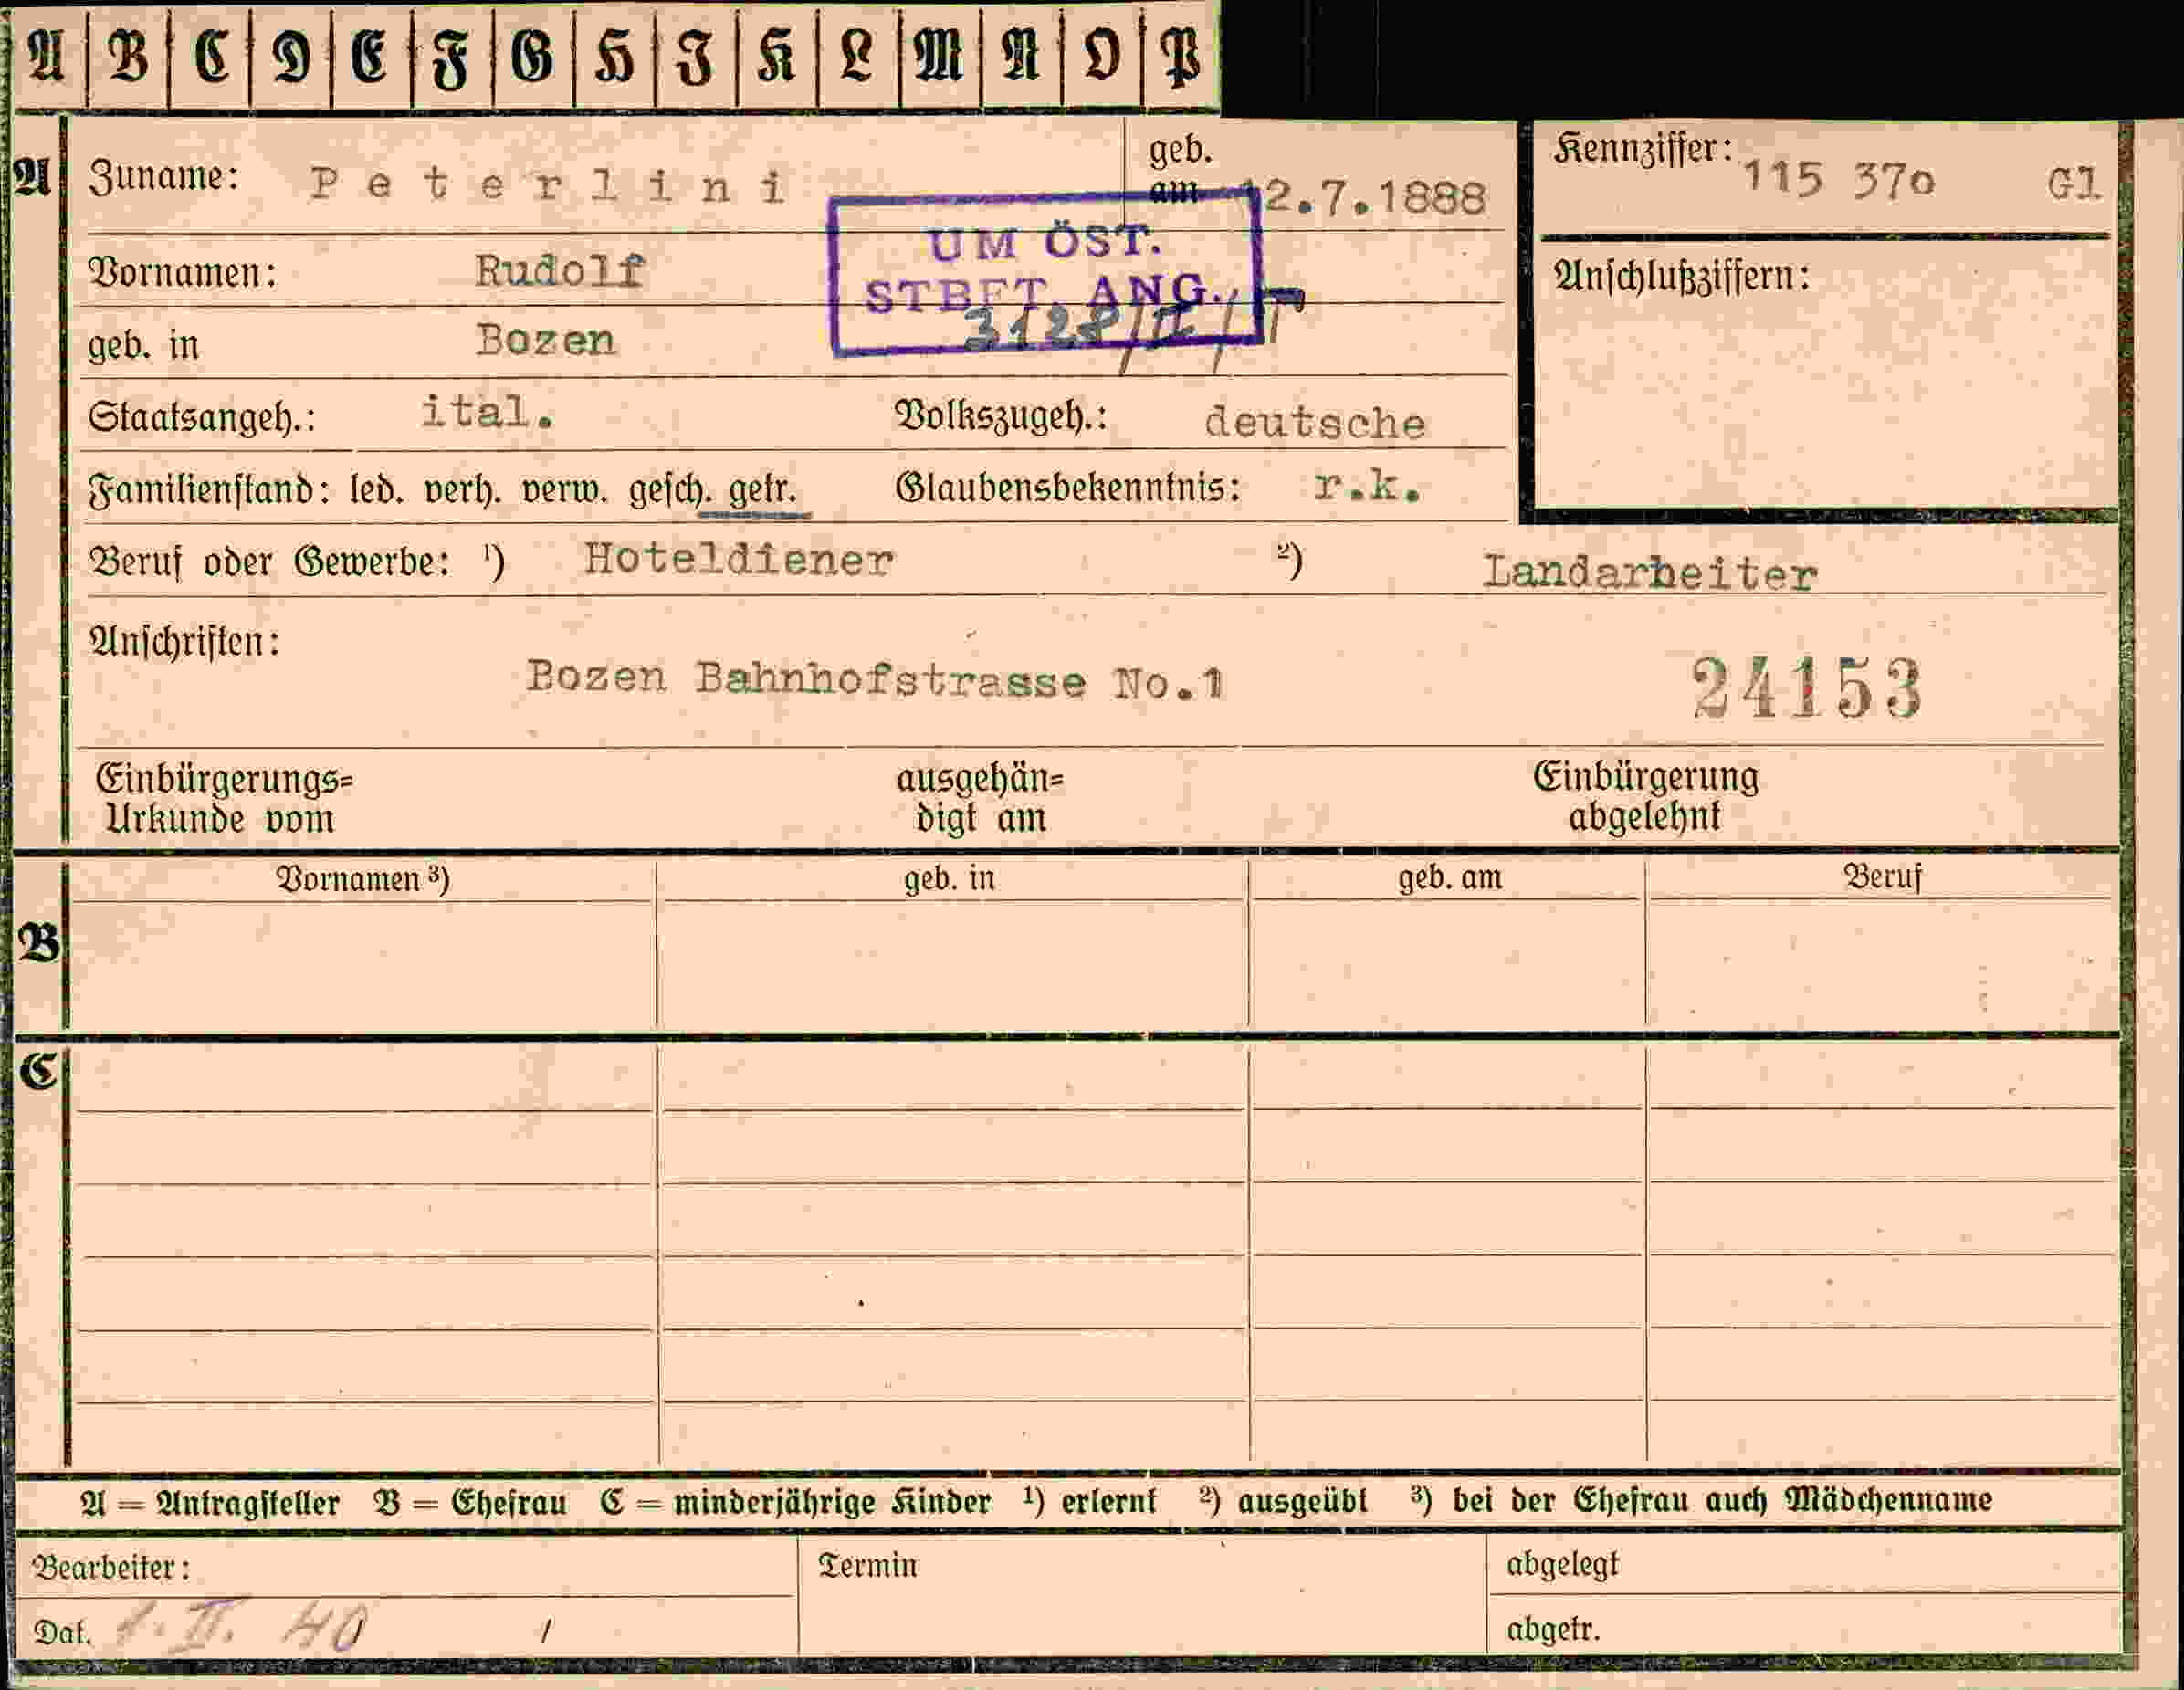 A B C D E F G H I K L M N O P
A Zuname: Peterlini geb. am 12.7.1888
Kennziffer: 115 370 Gl
UM ÖST.
STBFT. ANG.
Vornamen: Rudolf
Anschlußziffern:
geb. in Bozen
Staatsangeh.: ital. Volkszugeh.: deutsche
Familienstand: led. verh. verw. gesch. getr. Glaubensbekenntnis: r.k.
Beruf oder Gewerbe: ¹) Hoteldiener ²) Landarheiter
Anschriften:
Bozen Bahnhofstrasse No.1 24153
Einbürgerungs= ausgehän= Einbürgerung
Urkunde vom digt am abgelehnt
Vornamen ³) geb. in geb. am Beruf
B
C
A = Antragsteller B = Ehefrau C = minderjährige Kinder ¹) erlernt ²) ausgeübt ³) bei der Ehefrau auch Mädchenname
Bearbeiter: Termin abgelegt
Dat. 1. II. 40 / abgetr.